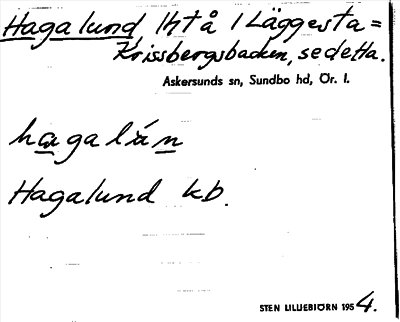 Hagalund, lht å 1 Läggesta=
Krissbergsbacken, se detta.
Askersunds sn, Sundbo hd, Ör. l.
hagalán
Hagalund kb.
STEN LILLIEBJÖRN 1954.